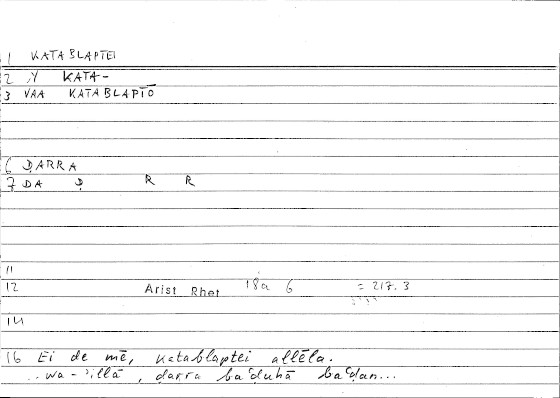 1 KATABLAPTEI
2 ,Y KATA-
3 VAA KATABLAPTŌ
6 ḌARRA
7 DA Ḍ R R
11
12 Arist Rhet 18a 6 = 217.3
14
16 Ei de mē, katablaptei allēla.
..wa-ʾillā, ḍarra baʿḍuhā baʿḍan...